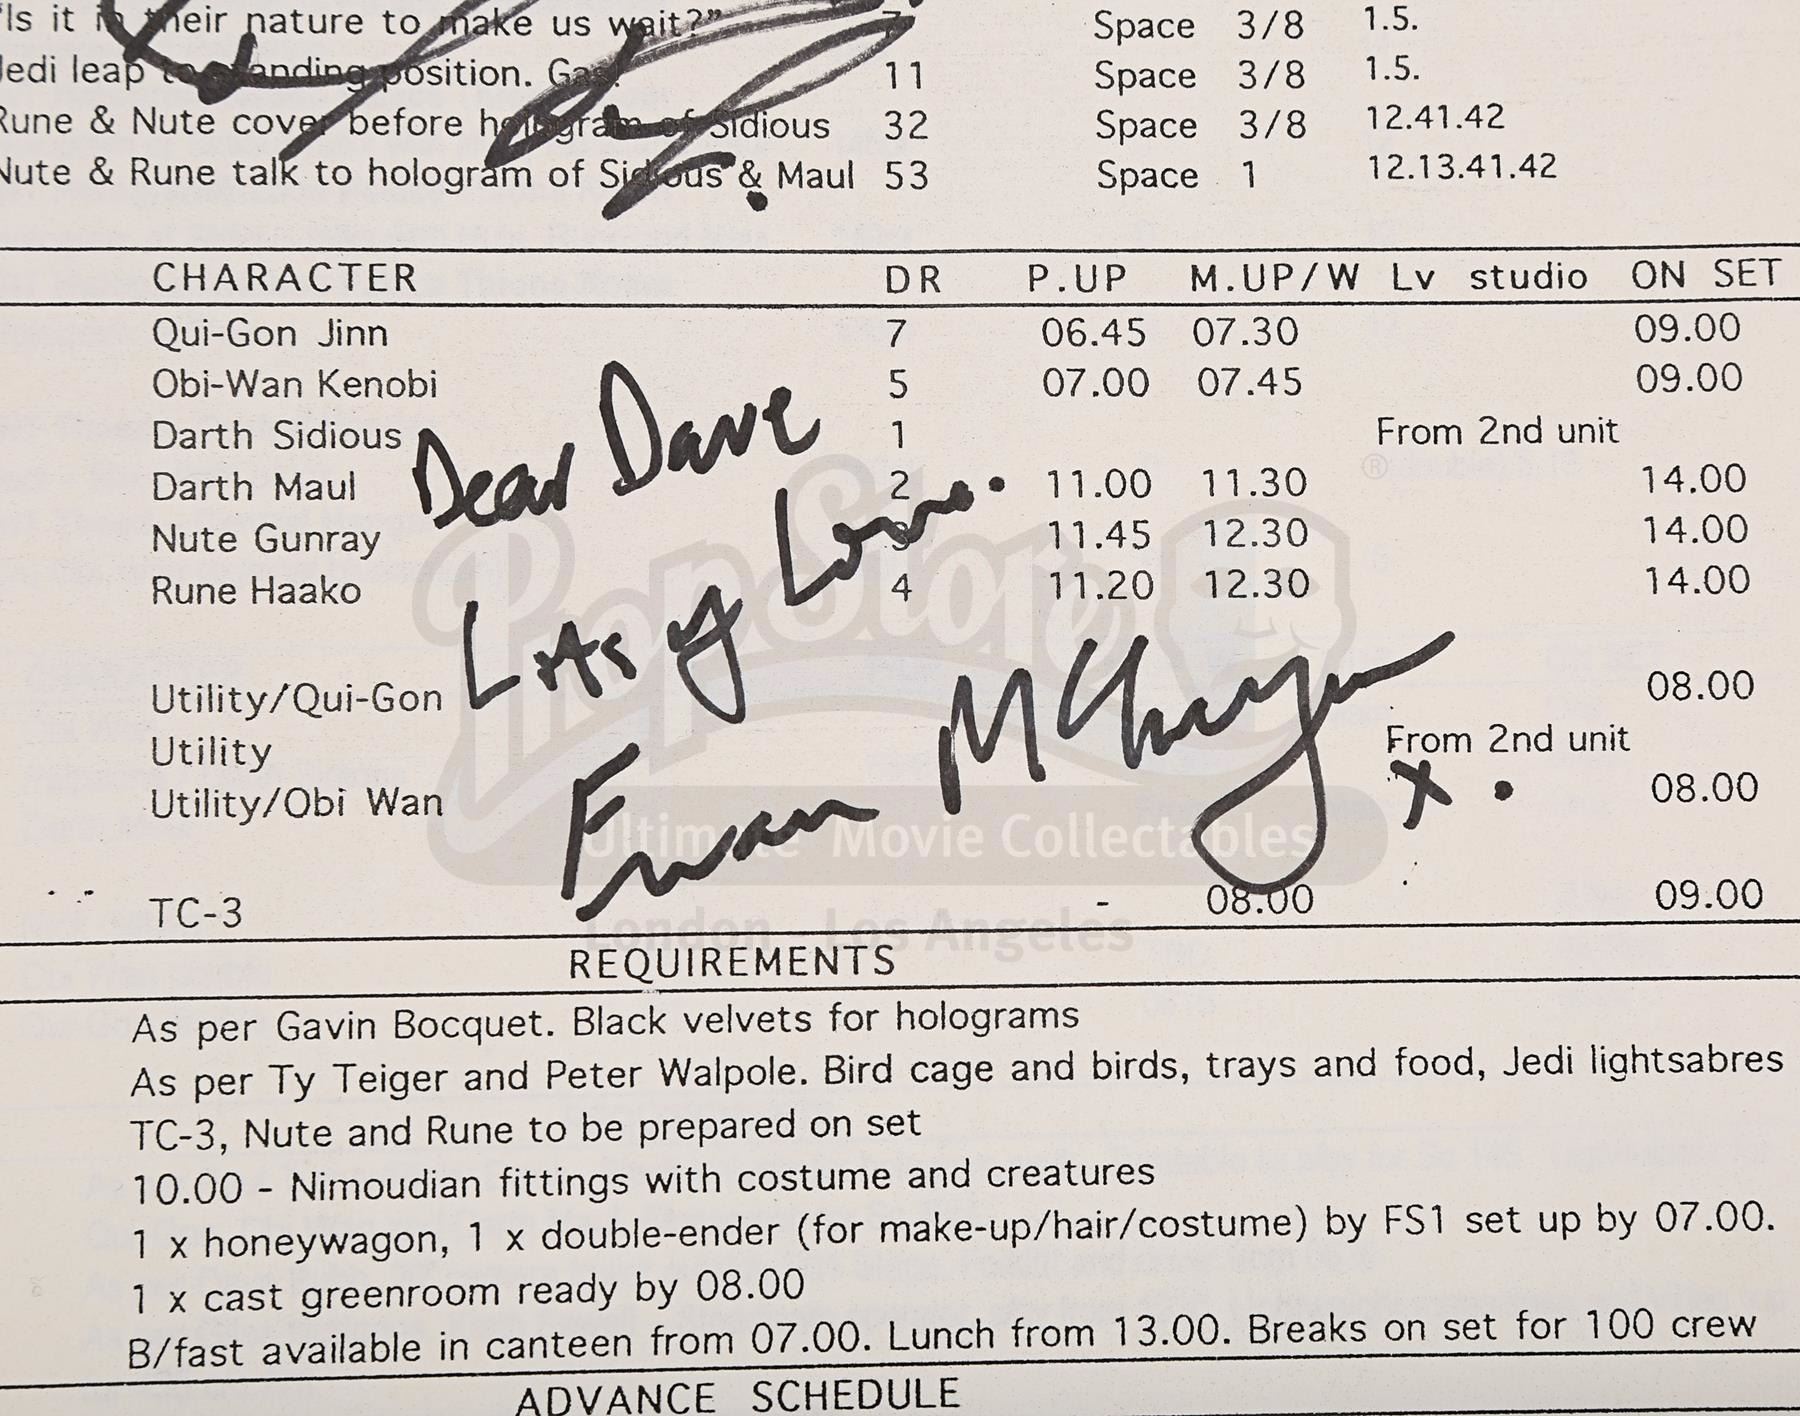 "Is it in their nature to make us wait?" 7 Space 3/8 1.5.
Jedi leap to standing position. Gas! 11 Space 3/8 1.5.
Rune & Nute cover before hologram of Sidious 32 Space 3/8 12.41.42
Nute & Rune talk to hologram of Sidious & Maul 53 Space 1 12.13.41.42
CHARACTER DR P.UP M.UP/W Lv studio ON SET
Qui-Gon Jinn 7 06.45 07.30 09.00
Obi-Wan Kenobi 5 07.00 07.45 09.00
Darth Sidious 1 From 2nd unit
Darth Maul 2 11.00 11.30 14.00
Nute Gunray 3 11.45 12.30 14.00
Rune Haako 4 11.20 12.30 14.00
Dear Dave
Lots of Love.
Ewan McGregor x.
Utility/Qui-Gon 08.00
Utility From 2nd unit
Utility/Obi Wan 08.00
TC-3 - 08.00 09.00
PropStore ®
Ultimate Movie Collectables
London - Los Angeles
REQUIREMENTS
As per Gavin Bocquet. Black velvets for holograms
As per Ty Teiger and Peter Walpole. Bird cage and birds, trays and food, Jedi lightsabres
TC-3, Nute and Rune to be prepared on set
10.00 - Nimoudian fittings with costume and creatures
1 x honeywagon, 1 x double-ender (for make-up/hair/costume) by FS1 set up by 07.00.
1 x cast greenroom ready by 08.00
B/fast available in canteen from 07.00. Lunch from 13.00. Breaks on set for 100 crew
ADVANCE SCHEDULE